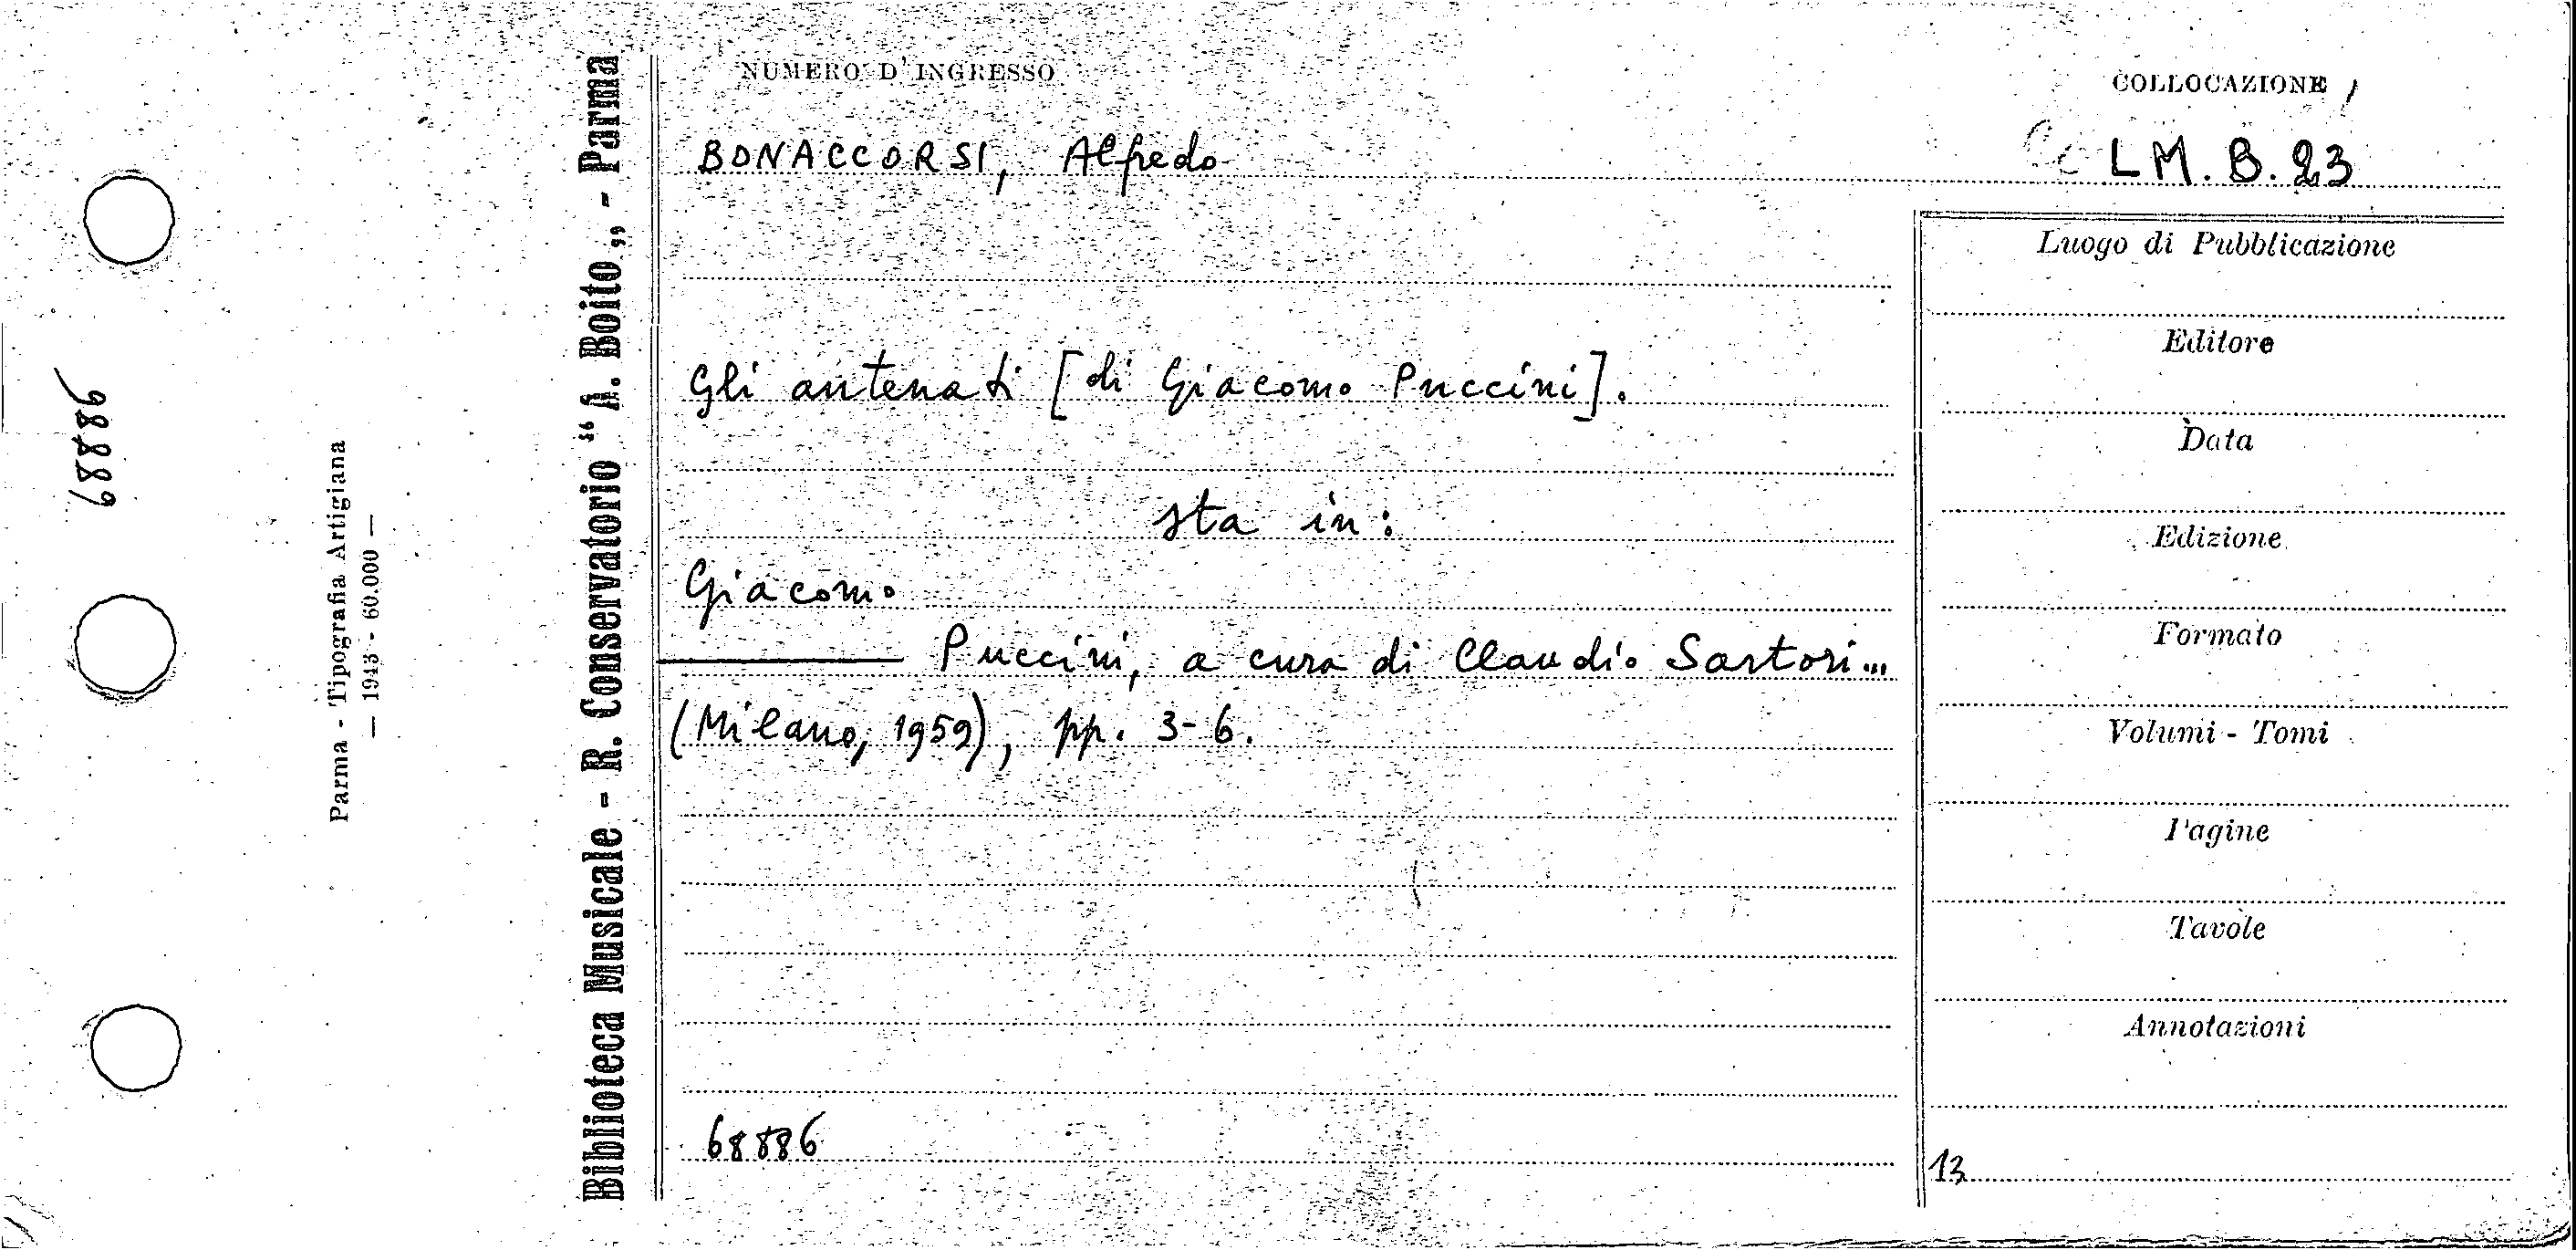 NUMERO D'INGRESSO
COLLOCAZIONE
BONACCORSI, Alfredo
LM. B. 23
Gli antenati [di Giacomo Puccini].
sta in:
Giacomo
Puccini, a cura di Claudio Sartori...
(Milano, 1959), pp. 3-6.
68886
Luogo di Pubblicazione
Editore
Data
Edizione
Formato
Volumi - Tomi
Pagine
Tavole
Annotazioni
13
Biblioteca Musicale - R. Conservatorio “A. Boito„ - Parma
Parma - Tipografia Artigiana
— 1943 - 60.000 —
68886